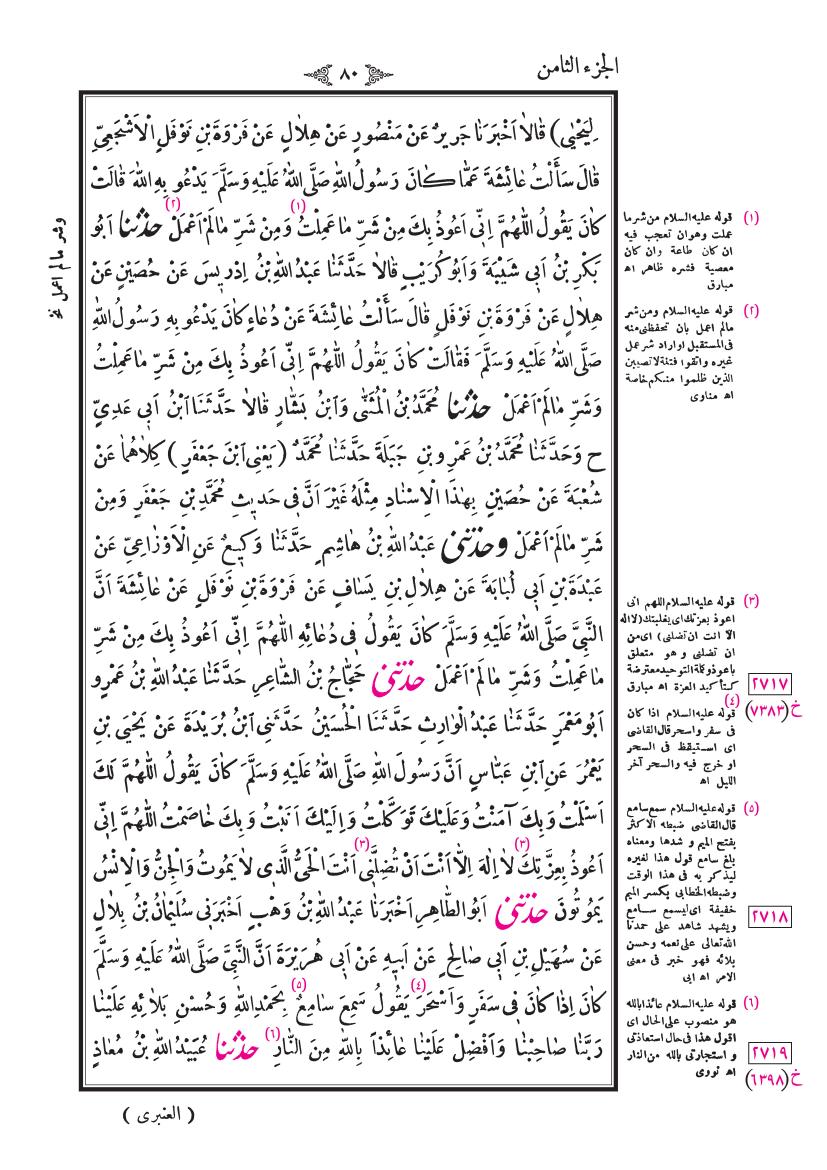 الجزء الثامن
٨٠
لِيَحْيٰى) قَالَا اَخْبَرَنَا جَرِيرٌ عَنْ مَنْصُورٍ عَنْ هِلَالٍ عَنْ فَرْوَةَ بْنِ نَوْفَلٍ الْاَشْجَعِيِّ
قَالَ سَأَلْتُ عَائِشَةَ عَمَّا كَانَ رَسُولُ اللّٰهِ صَلَّى اللّٰهُ عَلَيْهِ وَسَلَّمَ يَدْعُو بِهِ اللّٰهَ قَالَتْ
كَانَ يَقُولُ اللّٰهُمَّ اِنِّي اَعُوذُ بِكَ مِنْ شَرِّ مَا عَمِلْتُ (١) وَمِنْ شَرِّ مَا لَمْ اَعْمَلْ (٢) حَدَّثَنَا اَبُو
بَكْرِ بْنُ اَبِي شَيْبَةَ وَاَبُو كُرَيْبٍ قَالَا حَدَّثَنَا عَبْدُ اللّٰهِ بْنُ اِدْرِيسَ عَنْ حُصَيْنٍ عَنْ
هِلَالٍ عَنْ فَرْوَةَ بْنِ نَوْفَلٍ قَالَ سَأَلْتُ عَائِشَةَ عَنْ دُعَاءٍ كَانَ يَدْعُو بِهِ رَسُولُ اللّٰهِ
صَلَّى اللّٰهُ عَلَيْهِ وَسَلَّمَ فَقَالَتْ كَانَ يَقُولُ اللّٰهُمَّ اِنِّي اَعُوذُ بِكَ مِنْ شَرِّ مَا عَمِلْتُ
وَشَرِّ مَا لَمْ اَعْمَلْ حَدَّثَنَا مُحَمَّدُ بْنُ الْمُثَنَّى وَابْنُ بَشَّارٍ قَالَا حَدَّثَنَا ابْنُ اَبِي عَدِيٍّ
ح وَحَدَّثَنَا مُحَمَّدُ بْنُ عَمْرِو بْنِ جَبَلَةَ حَدَّثَنَا مُحَمَّدٌ (يَعْنِي ابْنَ جَعْفَرٍ) كِلَاهُمَا عَنْ
شُعْبَةَ عَنْ حُصَيْنٍ بِهٰذَا الْاِسْنَادِ مِثْلَهُ غَيْرَ اَنَّ فِي حَدِيثِ مُحَمَّدِ بْنِ جَعْفَرٍ وَمِنْ
شَرِّ مَا لَمْ اَعْمَلْ وَحَدَّثَنِي عَبْدُ اللّٰهِ بْنُ هَاشِمٍ حَدَّثَنَا وَكِيعٌ عَنِ الْاَوْزَاعِيِّ عَنْ
عَبْدَةَ بْنِ اَبِي لُبَابَةَ عَنْ هِلَالِ بْنِ يَسَافٍ عَنْ فَرْوَةَ بْنِ نَوْفَلٍ عَنْ عَائِشَةَ اَنَّ
النَّبِيَّ صَلَّى اللّٰهُ عَلَيْهِ وَسَلَّمَ كَانَ يَقُولُ فِي دُعَائِهِ اللّٰهُمَّ اِنِّي اَعُوذُ بِكَ مِنْ شَرِّ
مَا عَمِلْتُ وَشَرِّ مَا لَمْ اَعْمَلْ حَدَّثَنِي حَجَّاجُ بْنُ الشَّاعِرِ حَدَّثَنَا عَبْدُ اللّٰهِ بْنُ عَمْرٍو
اَبُو مَعْمَرٍ حَدَّثَنَا عَبْدُ الْوَارِثِ حَدَّثَنَا الْحُسَيْنُ حَدَّثَنِي ابْنُ بُرَيْدَةَ عَنْ يَحْيَى بْنِ
يَعْمُرَ عَنِ ابْنِ عَبَّاسٍ اَنَّ رَسُولَ اللّٰهِ صَلَّى اللّٰهُ عَلَيْهِ وَسَلَّمَ كَانَ يَقُولُ اللّٰهُمَّ لَكَ
اَسْلَمْتُ وَبِكَ آمَنْتُ وَعَلَيْكَ تَوَكَّلْتُ وَاِلَيْكَ اَنَبْتُ وَبِكَ خَاصَمْتُ اللّٰهُمَّ اِنِّي
اَعُوذُ بِعِزَّتِكَ (٣) لَا اِلٰهَ اِلَّا اَنْتَ اَنْ تُضِلَّنِي (٣) اَنْتَ الْحَيُّ الَّذِي لَا يَمُوتُ وَالْجِنُّ وَالْاِنْسُ
يَمُوتُونَ حَدَّثَنِي اَبُو الطَّاهِرِ اَخْبَرَنَا عَبْدُ اللّٰهِ بْنُ وَهْبٍ اَخْبَرَنِي سُلَيْمَانُ بْنُ بِلَالٍ
عَنْ سُهَيْلِ بْنِ اَبِي صَالِحٍ عَنْ اَبِيهِ عَنْ اَبِي هُرَيْرَةَ اَنَّ النَّبِيَّ صَلَّى اللّٰهُ عَلَيْهِ وَسَلَّمَ
كَانَ اِذَا كَانَ فِي سَفَرٍ وَاَسْحَرَ (٤) يَقُولُ سَمِعَ سَامِعٌ (٥) بِحَمْدِ اللّٰهِ وَحُسْنِ بَلَائِهِ عَلَيْنَا
رَبَّنَا صَاحِبْنَا وَاَفْضِلْ عَلَيْنَا عَائِذًا بِاللّٰهِ مِنَ النَّارِ (٦) حَدَّثَنَا عُبَيْدُ اللّٰهِ بْنُ مُعَاذٍ
( العنبرى )
وشر مالم اعمل نخ
(١) قوله عليه السلام من شر ما
عملت وهو ان تعجب فيه
ان كان طاعة وان كان
معصية فشره ظاهر اه
مبارق
(٢) قوله عليه السلام ومن شر
مالم اعمل بان تحفظنى منه
فى المستقبل او اراد شر عمل
غيره واتقوا فتنة لا تصيبن
الذين ظلموا منكم خاصة
اه مناوى
(٣) قوله عليه السلام اللهم انى
اعوذ بعزتك اى بغلبتك (لا اله
الا انت ان تضلنى) اى من
ان تضلنى وهو متعلق
باعوذ وكلمة التوحيد معترضة
لتأكيد العزة اه مبارق
٢٧١٧
خ (٧٣٨٣)
(٤) قوله عليه السلام اذا كان
فى سفر واسحر قال القاضى
اى استيقظ فى السحر
او خرج فيه والسحر آخر
الليل اه
(٥) قوله عليه السلام سمع سامع
قال القاضى ضبطه الاكثر
بفتح الميم و شدها ومعناه
بلغ سامع قول هذا لغيره
ليذكر به فى هذا الوقت
وضبطه الخطابى بكسر الميم
خفيفة اى ليسمع سامع
ويشهد شاهد على حمدنا
الله تعالى على نعمه وحسن
بلائه فهو خبر فى معنى
الامر اه ابى
٢٧١٨
(٦) قوله عليه السلام عائذا بالله
هو منصوب على الحال اى
اقول هذا فى حال استعاذتى
و استجارتى بالله من النار
اه نووى
٢٧١٩
خ (٦٣٩٨)